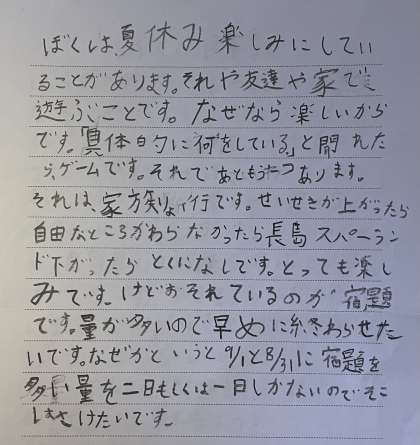 ぼくは、夏休み楽しみにしてい
ることがあります。それや友達や家で
遊ぶことです。なぜなら楽しいから
です。「具体的に何をしている」と聞れた
ら、ゲームです。それであともう一つあります。
それは、家族りょ行です。せいせきが上がったら
自由なところがわらなかったら長島スパーラン
ド下がったらとくになしです。とっても楽し
みです。けどおそれているのが宿題
です。量が多いので早めに終わらせた
いです。なぜかというと9/1と8/31に宿題を
多い量を二日もしくは一日しかないのでそこ
さけたいです。